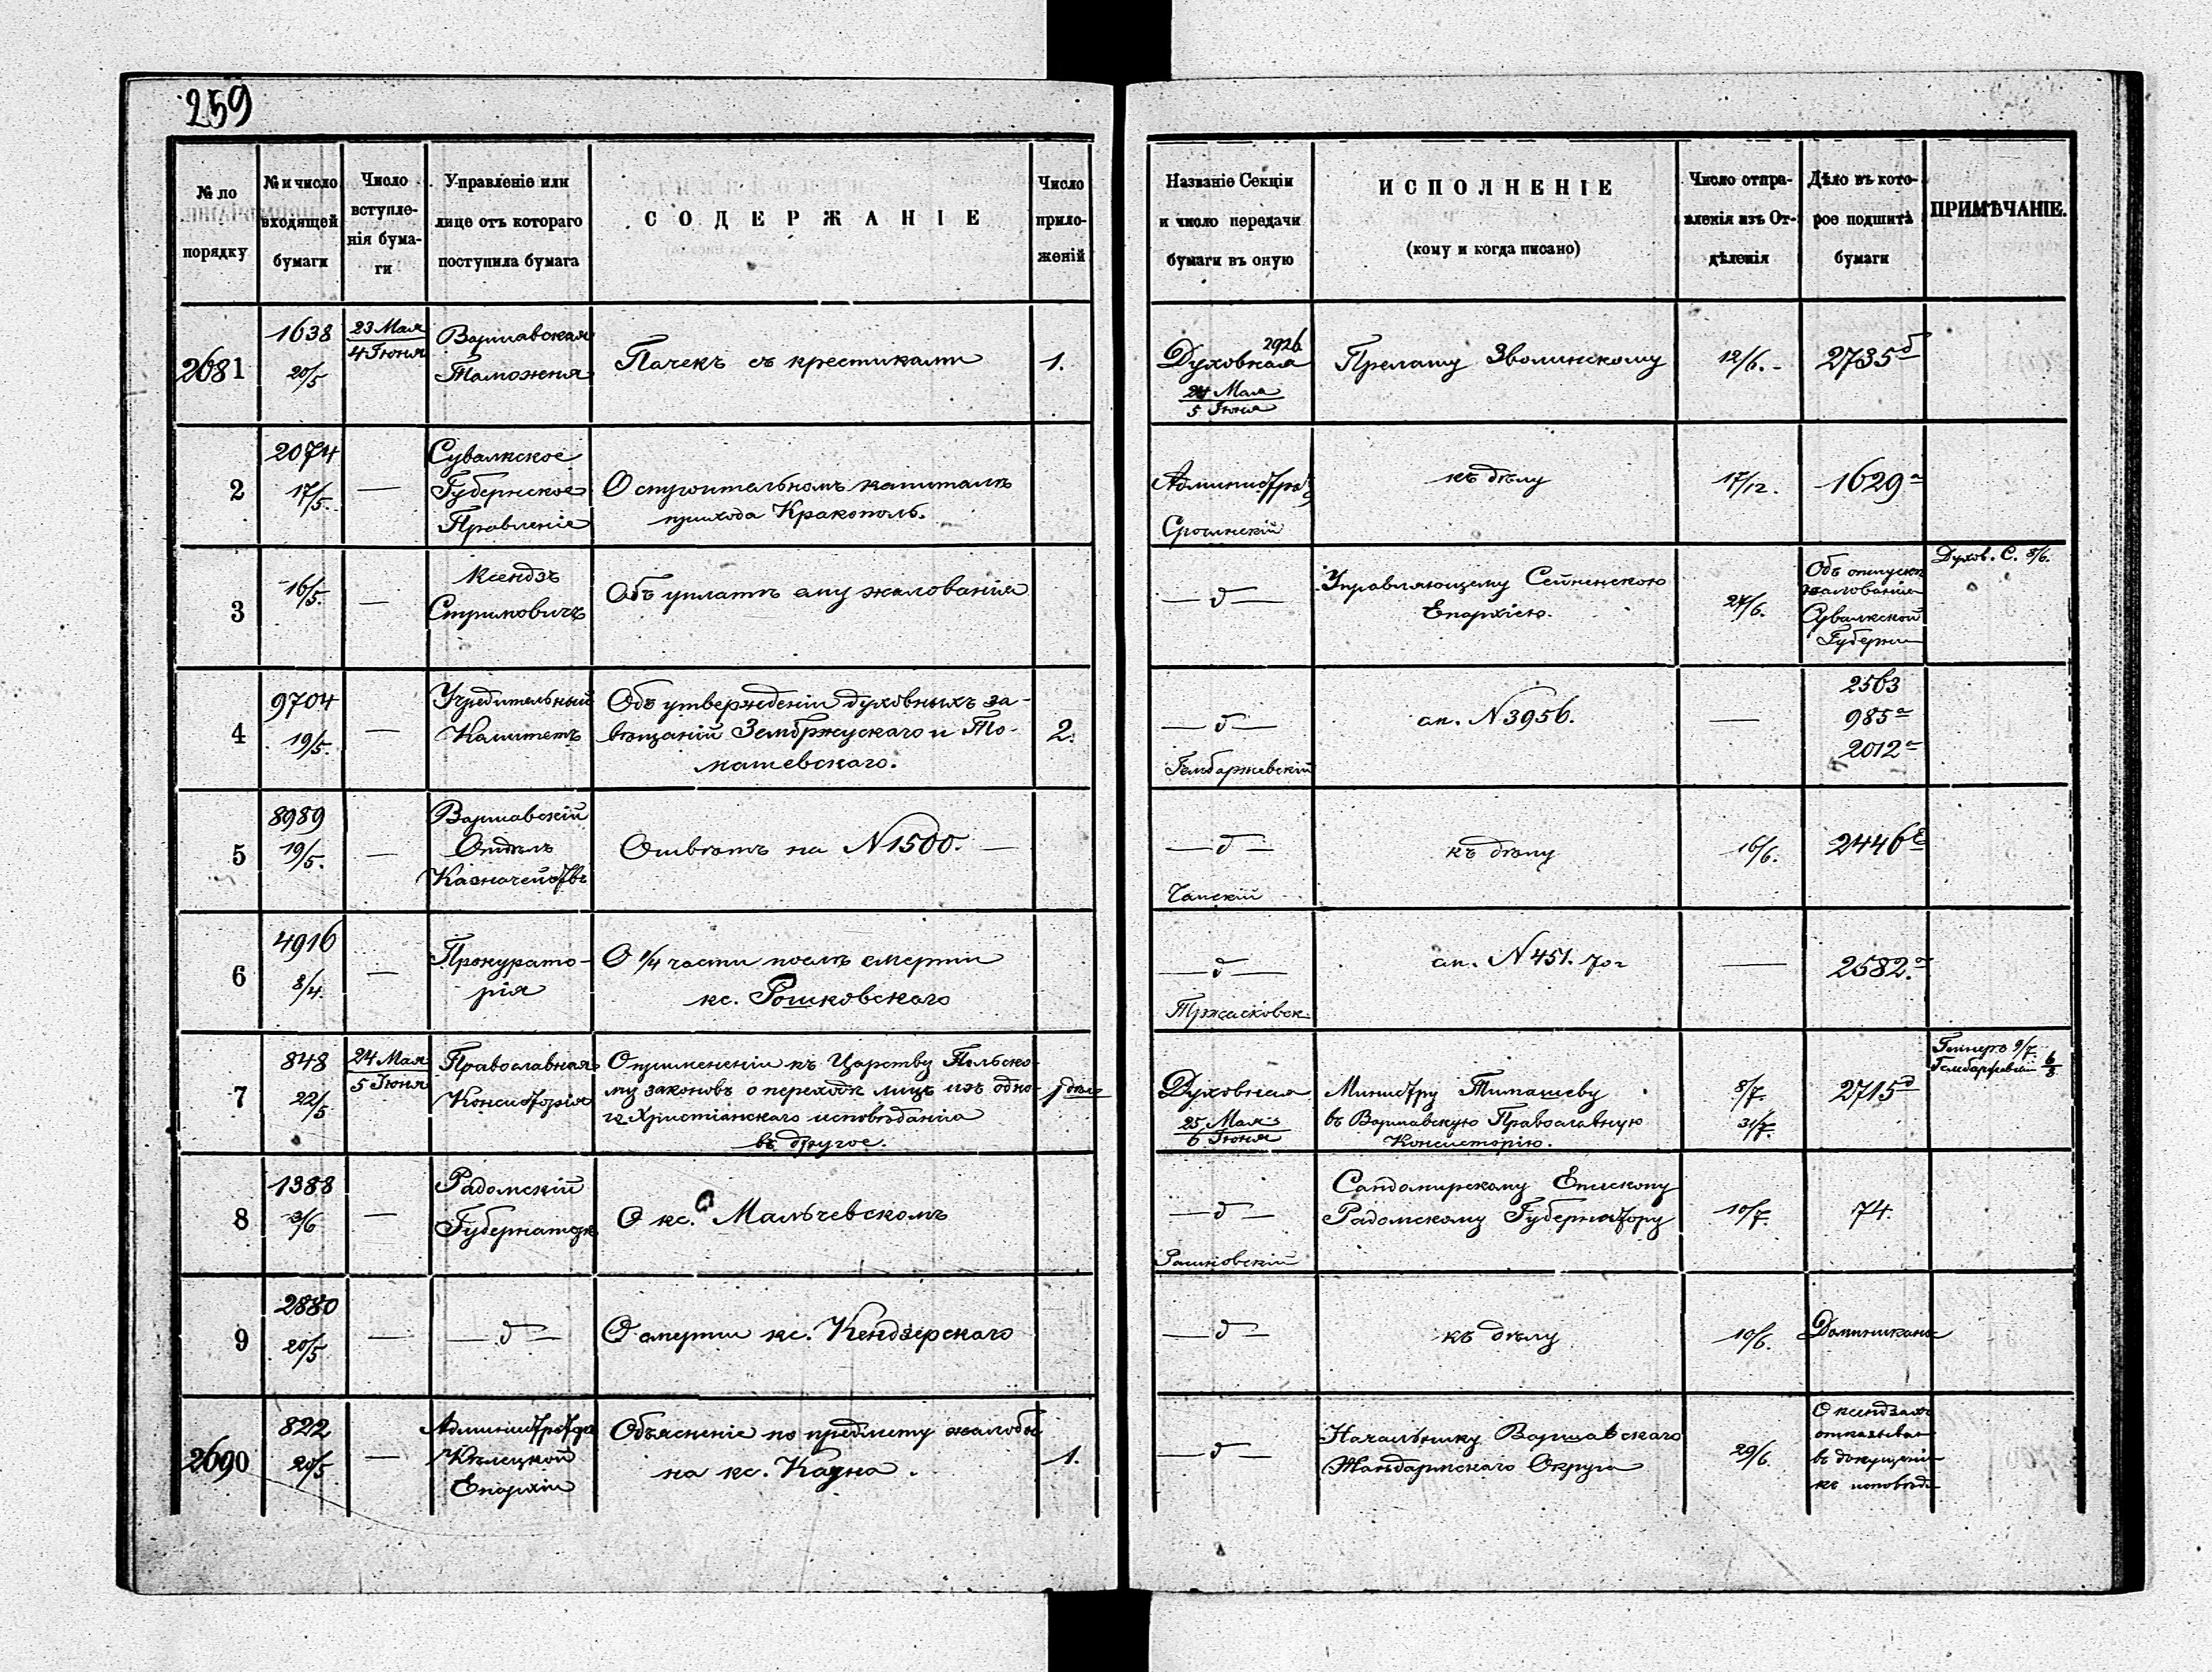 259
№ по порядку
№ и число входящей бумаги
Число вступле-нія бума-ги
Управленіе или лице отъ котораго поступила бумага
СОДЕРЖАНІЕ
Число прило-женій
Названіе Секціи и число передачи бумаги въ оную
ИСПОЛНЕНІЕ
(кому и когда писано)
Число отпра-вленія изъ От-дѣленія
Дѣло въ кото-рое подшитѣ бумаги
ПРИМѢЧАНІЕ.
2681
1638
20/5
23 Мая
4 Іюня
Варшавская
Таможня
Пачекъ съ крестиками
1.
2926
Духовная
24 Мая
5 Іюня
Прелату Зволинскому
12/6.
2735 б
2
2074
17/5.
—
Сувалкское
Губернское
Правленіе
О строительномъ капиталѣ
прихода Кракополь.
къ дѣлу
17/12.
1629 а
3
16/5.
—
Ксендзъ
Стримовичъ
Объ уплатѣ ему жалованія
— д —
Управляющему Сейненскою
Епархіею.
24/6.
Объ отпускѣ
жалованія
Сувалкской
Губерніи
Духов. С. 8/6.
4
9704
19/5.
—
Учредительный
Комитетъ
Объ утвержденіи духовныхъ за-
вѣщаній Зембржускаго и То-
машевскаго.
2.
— д —
Гембаржевскій
сп. N 3956.
—
2563
985 а
2012 а
5
8989
19/5.
—
Варшавскій
Отдѣлъ
Казначейства
Отвѣтъ на N 1500. —
— д —
къ дѣлу
16/6.
2446 Е
6
4916
8/4.
—
Прокурато-
рія
О 1/4 части послѣ смерти
кс. Рошковскаго
— д —
сп. N 451. 70 г
—
2582. а
7
848
22/5
24 Мая
5 Іюня
Православная
Консисторія
О примененіи къ Царству Польско-
му законовъ о переходѣ лицъ изъ одно-
го Христіанскаго исповѣданія
въ другое.
1 дѣло
Духовная
25 Мая
6 Іюня
Министру Тимашеву
въ Варшавскую Православную
Консисторію.
8/7.
31/7.
2715 д
9/7.
Гембаржевскій 6/8
8
1388
3/6
—
Радомскій
Губернаторъ
О кс. Мальчевскомъ
— д —
Рашковскій
Сандомирскому Епископу
Радомскому Губернатору
10/7.
74
9
2880
20/5
—
— д —
О смерти кс. Кендзерскаго
— д —
къ дѣлу
10/6.
Доминикане
2690
822
20/5
—
Администраторъ
Кѣлецкой
Епархіи
Объясненіе по предмету жалобы
на кс. Кадна.
1.
— д —
Начальнику Варшавскаго
Жандармскаго Округа
29/6
О ксендзахъ
въ допущеніи
къ исповѣди